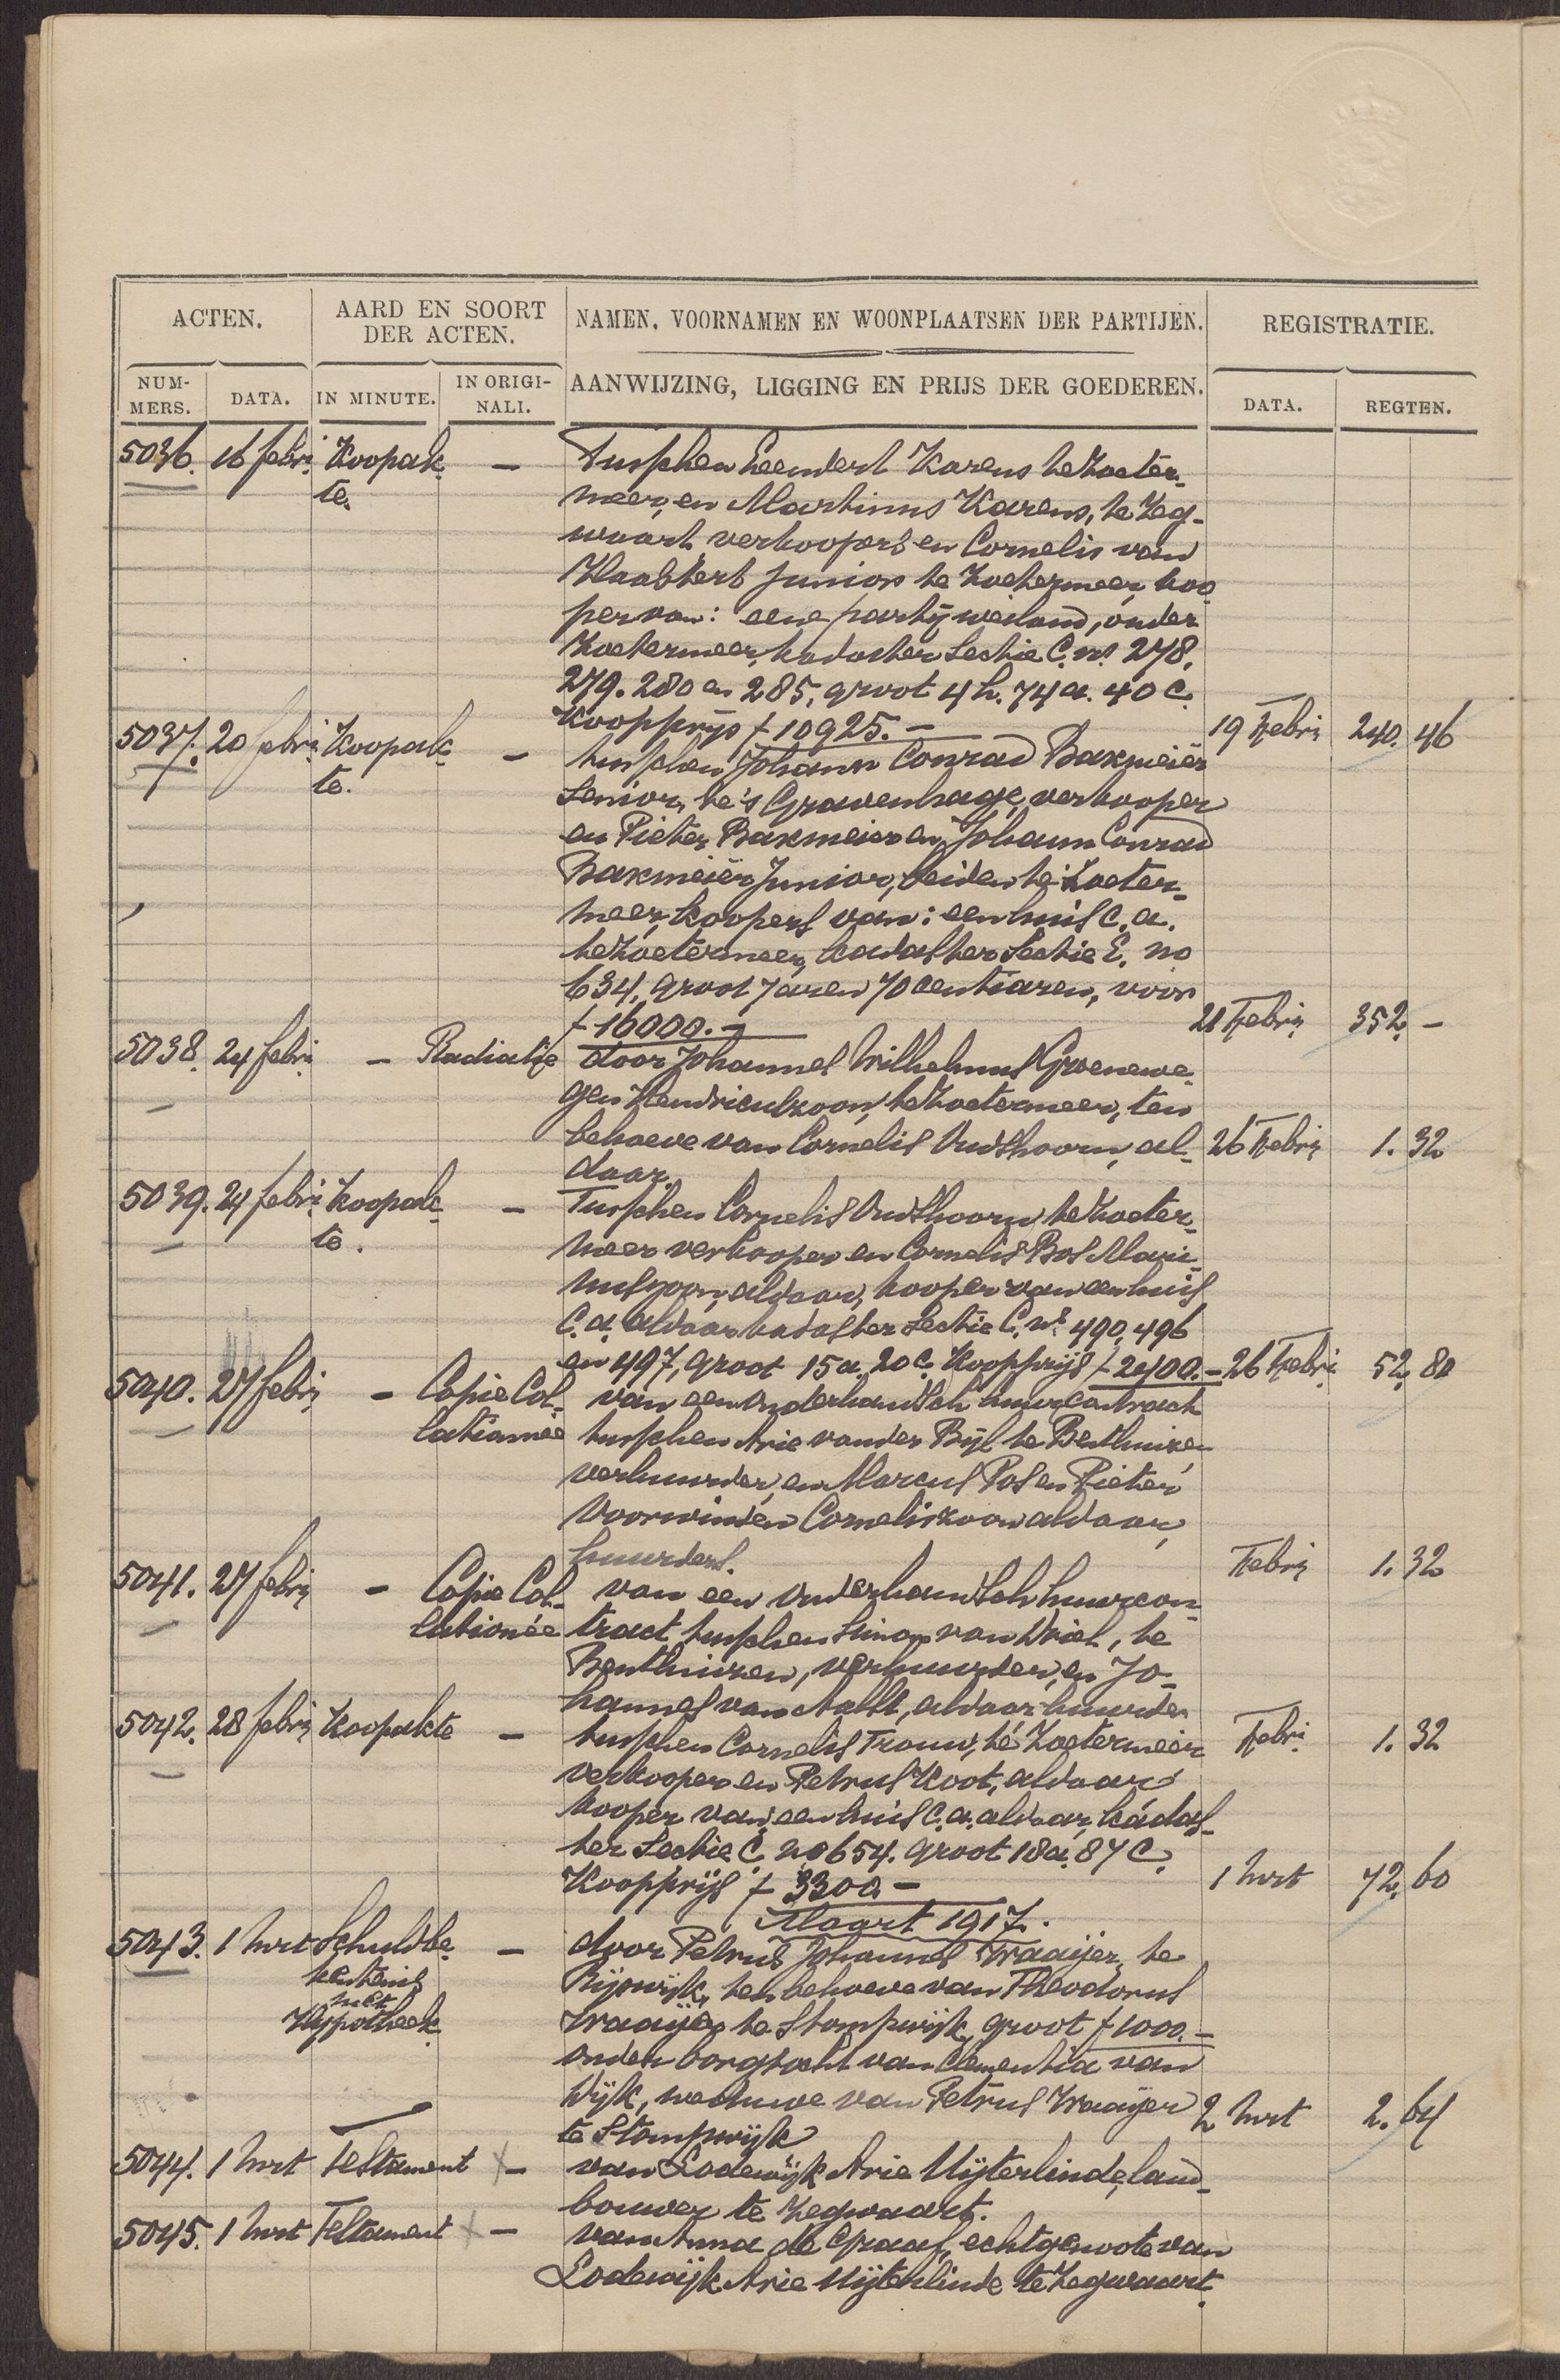 ACTEN.
AARD EN SOORT
DER ACTEN.
NAMEN, VOORNAMEN EN WOONPLAATSEN DER PARTIJEN.
REGISTRATIE.
NUM-
MERS.
DATA.
IN MINUTE.
IN ORIGI-
NALI.
AANWIJZING, LIGGING EN PRIJS DER GOEDEREN.
DATA.
REGTEN.
5036. 16 febri Koopak- – Tusschen Leendert Karens te Zoeter-
te. meer, en Martinus Karens, te Zeg-
waart, verkoopers en Cornelis van
Junior te Zoetermeer, koo-
per van: eene partij weiland, onder
Zoetermeer, kadaster Sectie C. nos 278,
279. 280 en 285, groot 4 h. 74 a. 40 c.
Koopprijs f 10925.– 19 Febri 240. 46
5037. 20 febri Koopak- – tusschen Johann Conrad Baxmeier
te. Senior, te 's Gravenhage, verkooper
en Pieter Baxmeier en Johann Conrad
Baxmeier Junior, beiden te Zoeter-
meer, koopers van: een huis c.a.
te Zoetermeer, kadaster Sectie E. no
634, groot 7 aren 70 centiaren, voor
f 16000.– 21 Febri 352. –
5038. 24 febri – Radiatie door Johannes Wilhelmus Groenewe-
gen Hendricuszoon, te Zoetermeer, ten
behoeve van Cornelis Oudshoorn, al- 26 Febri 1. 32
daar.
5039. 24 febri Koopak- – Tusschen Cornelis Oudshoorn, te Zoeter-
te. meer verkooper en Cornelis Bos Mari-
nuszoon, aldaar, kooper van een huis
c.a. aldaar kadaster Sectie C. nos 490, 496
en 497, groot 15 a. 20 c. Koopprijs f 2400.– 26 Febri 52. 80
5040. 27 febri – Copie Col- van een onderhandsch huurcontract
lationnée tusschen Arie van der Bijl te Benthuizen
verhuurder, en Marcus Pos en Pieter
Voorwinden Corneliszoon aldaar,
huurders. Febri 1. 32
5041. 27 febri – Copie Col- van een onderhandsch huurcon-
lationée tract tusschen Simon van Driel, te
Benthuizen, verhuurder, en Jo-
hannes van Aalst, aldaar huurder Febri 1. 32
5042. 28 febri Koopakte – tusschen Cornelis Trouw, te Zoetermeer
verkooper en Petrus Koot, aldaar
kooper van een huis c.a. aldaar, kadas-
ter Sectie C. no 654. groot 18 a. 87 c.
Koopprijs f 3300.– 1 Mrt 72. 60
Maart 1917.
5043. 1 Mrt Schuldbe- – door Petrus Johannes Vraaijer, te
kentenis Rijswijk, ten behoeve van Theodorus
met Vraaijer te Stompwijk, groot f 1000.–
Hypotheek. onder borgtocht van Clementia van
Wijk, weduwe van Petrus Vraaijer 2 Mrt 2. 64
te Stompwijk
5044. 1 Mrt Testament x – van Lodewijk Arie Uijterlinde, land-
bouwer te Zegwaart.
5045. 1 Mrt Testament x – van Anna de Graaf, echtgenoote van
Lodewijk Arie Uijterlinde te Zegwaart.